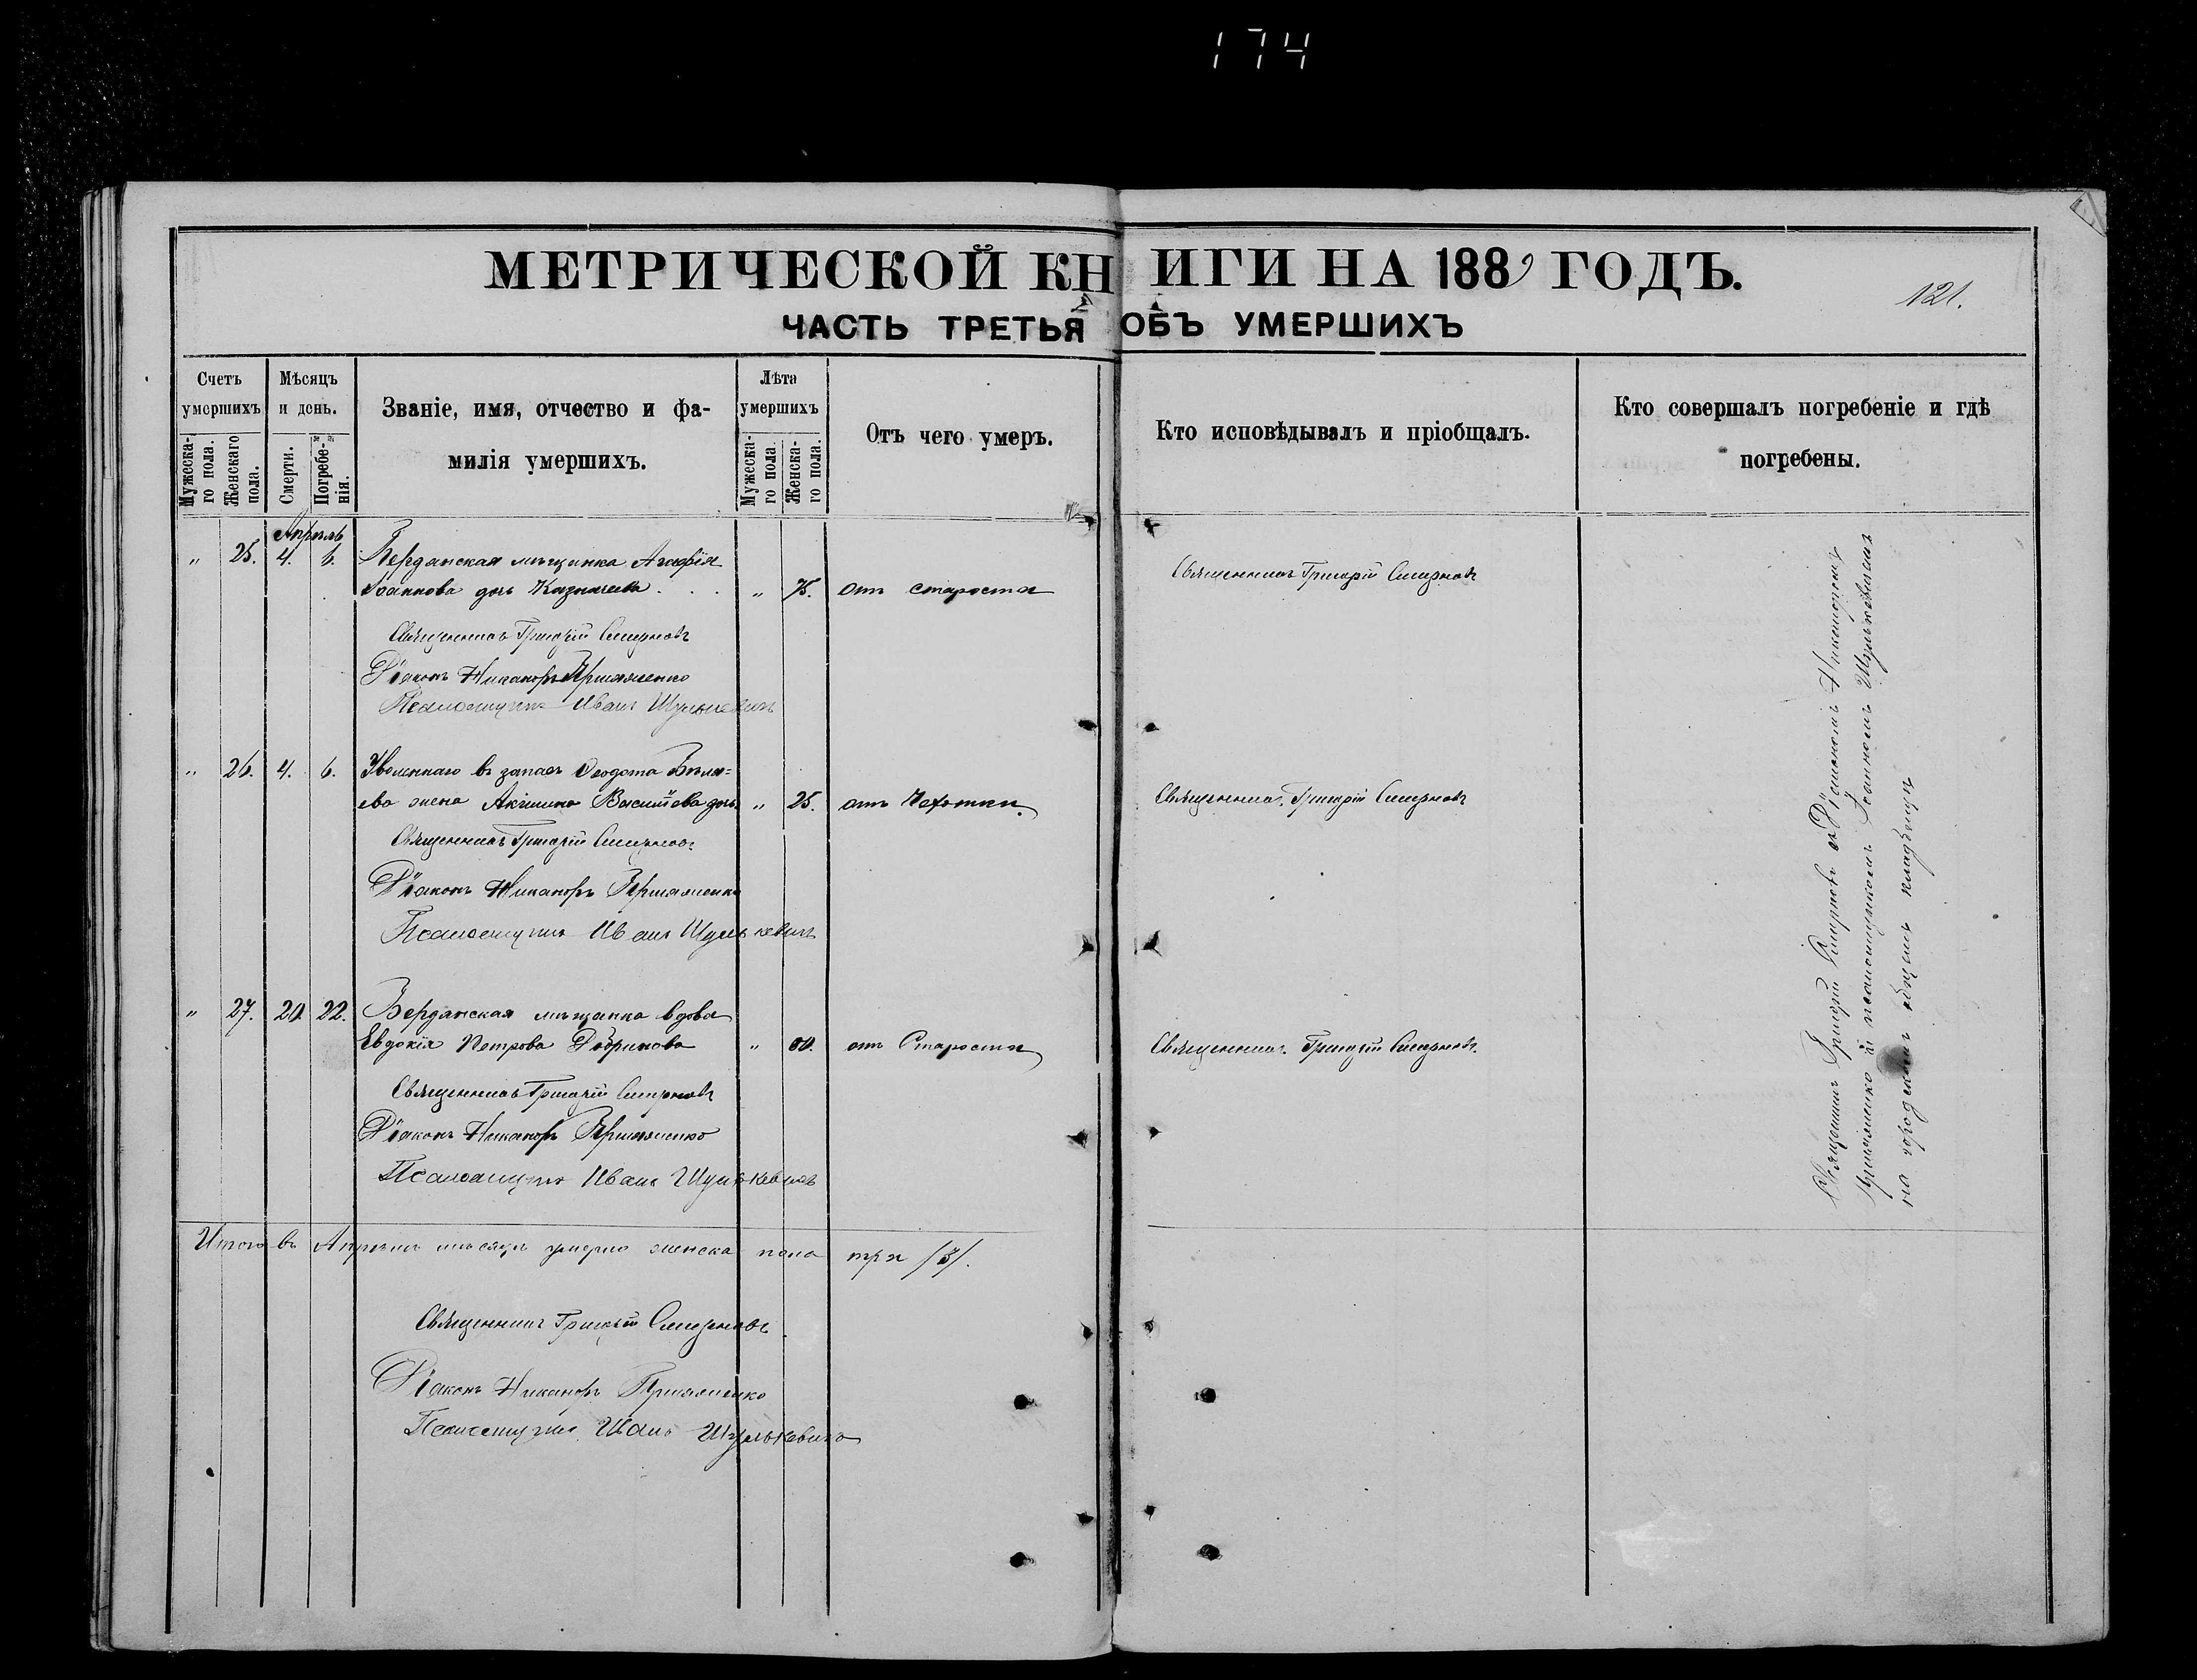 174
МЕТРИЧЕСКОЙ КНИГИ НА 1889 ГОДЪ.
121.
ЧАСТЬ ТРЕТЬЯ ОБЪ УМЕРШИХЪ
Счетъ умершихъ
Мужеска-го пола.
Женскаго пола.
Мѣсяцъ и день.
Смерти.
Погребе-нія.
Званіе, имя, отчество и фа-
милія умершихъ.
Лѣта умершихъ
Мужеска-го пола.
Женска-го пола.
Отъ чего умеръ.
Кто исповѣдывалъ и пріобщалъ.
Кто совершалъ погребеніе и гдѣ
погребены.
Апрѣль
" 25. 4. 6. Бердянская мѣщанка Агафія
Іоаннова дочь " 75. отъ старости
Священникъ Григорій Смирновъ
Священникъ Григорій Смирновъ
Діаконъ Никаноръ
Псаломщикъ Иванъ Шулькевичъ
" 26. 4. 6. Уволеннаго въ запасъ Ѳеодота Бѣля=
ева жена Акилина дочь " 25. отъ Чахотки.
Священникъ Григорій Смирновъ
Священникъ Григорій Смирновъ
Діаконъ Никаноръ
Псаломщикъ Иванъ Шулькевичъ
" 27. 20. 22. Бердянская мѣщанка вдова
Евдокія Петрова " отъ Старости
Священникъ Григорій Смирновъ.
Священникъ Григорій Смирновъ
Діаконъ Никаноръ
Псаломщикъ Иванъ Шулькевичъ
Итого въ Апрѣлѣ мѣсяцѣ умерло женска пола три /3/.
Священникъ Григорій Смирновъ
Діаконъ Никаноръ
Псаломщикъ Иванъ Шулькевичъ
Священникъ Григорій Смирновъ съ Діакономъ Никаноромъ
и псаломщикомъ Іоанномъ Шулькевичемъ
на городскомъ общемъ кладбищѣ